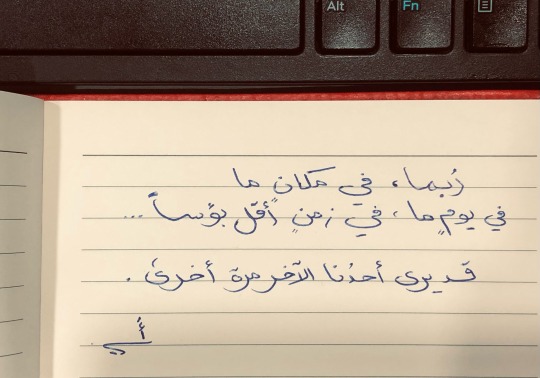 Alt
Fn
رُبما، في مكانٍ ما
في يومٍ ما، في زمنٍ أقل بؤساً ...
قد يرى أحدُنا الآخر مرة أخرى .